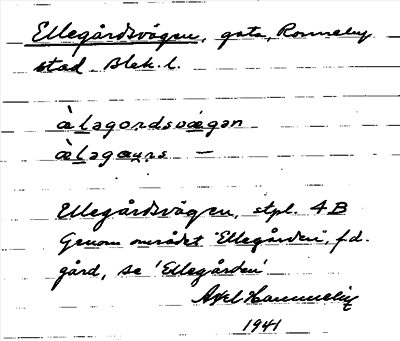 Ellegårdsvägen, gata, Ronneby
stad. Blek. l.
àlǝgordsvægǝn
àlǝgaurs —
Ellegårdsvägen, stpl. 4B
Genom området 'Ellegården', f.d.
gård, se 'Ellegården'
Axel Hammelin
1941